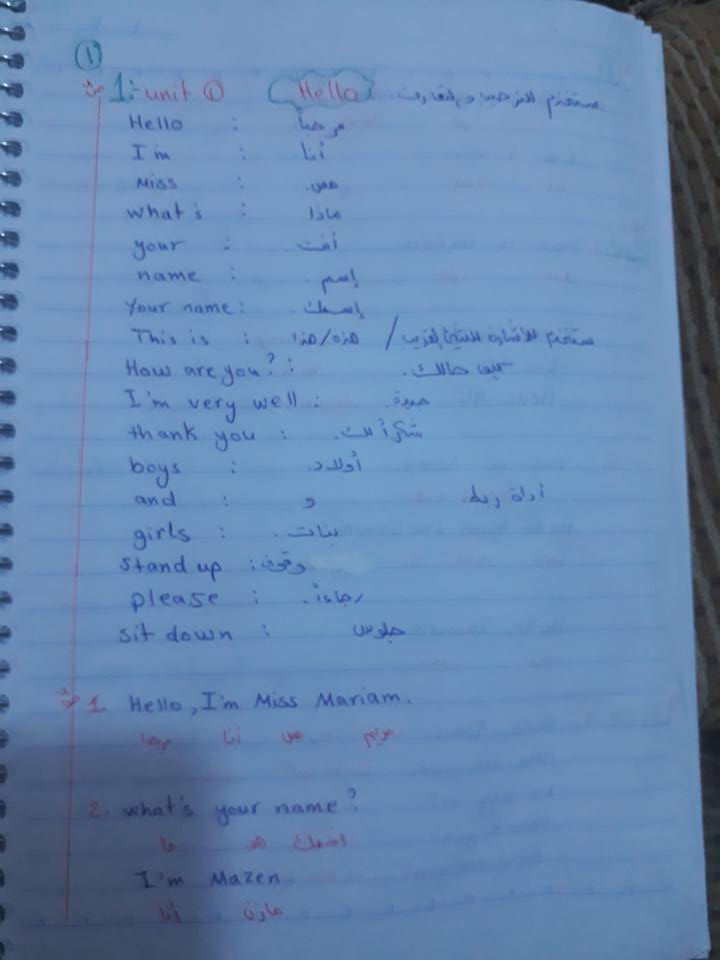 ①
ص 1:- unit ① Hello: تستخدم للترحيب والتعارف.
Hello : مرحباً
I'm : أنا
Miss : مس.
what's : ماذا
your : أنت.
name : إسم.
Your name: إسمك.
This is : هذه/هذا / تستخدم للأشارة للشيئ القريب
How are you? : كيف حالك.
I'm very well : جيدة.
thank you : شكراً لك.
boys : أولاد.
and : و أداة ربط.
girls : بنات.
Stand up : وقوف
please : رجاءاً.
sit down : جلوس
ص 1 Hello, I'm Miss Mariam.
مرحبا أنا مس مريم
2. what's your name?
ما هو اسمك
I'm Mazen
أنا مازن